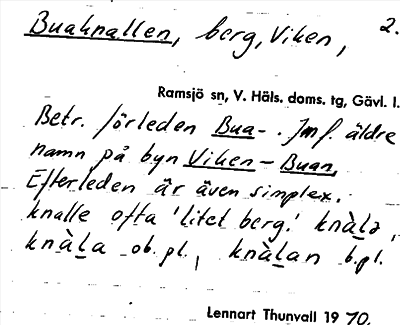 Buaknallen, berg, Viken, 2.
Ramsjö sn, V. Häls. doms. tg, Gävl. l.
Betr. förleden Bua-. Jmf. äldre
namn på byn Viken - Buan.
Efterleden är även simplex.
knalle ofta 'litet berg.' knàlə,
knàla ob.pl., knàlan b.pl.
Lennart Thunvall 1970.